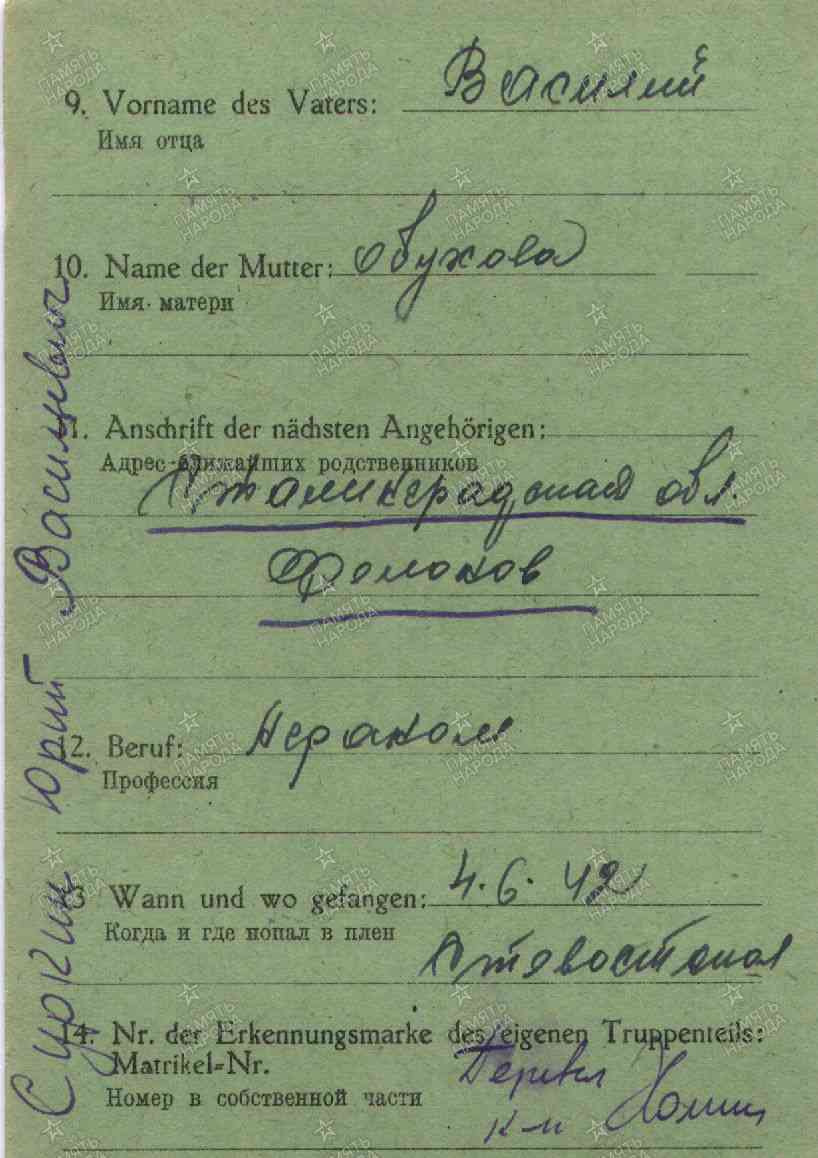 9. Vorname des Vaters: Василий
Имя отца
10. Name der Mutter: Обухова
Имя матери
11. Anschrift der nächsten Angehörigen:
Адрес ближайших родственников
Сталинградская обл.
12. Beruf:
Профессия
13 Wann und wo gefangen: 4.6.42
Когда и где попал в плен
14. Nr. der Erkennungsmarke des eigenen Truppenteils:
Matrikel-Nr.
Номер в собственной части
Перевел
Суркин Юрий Васильевич
ПАМЯТЬ НАРОДА